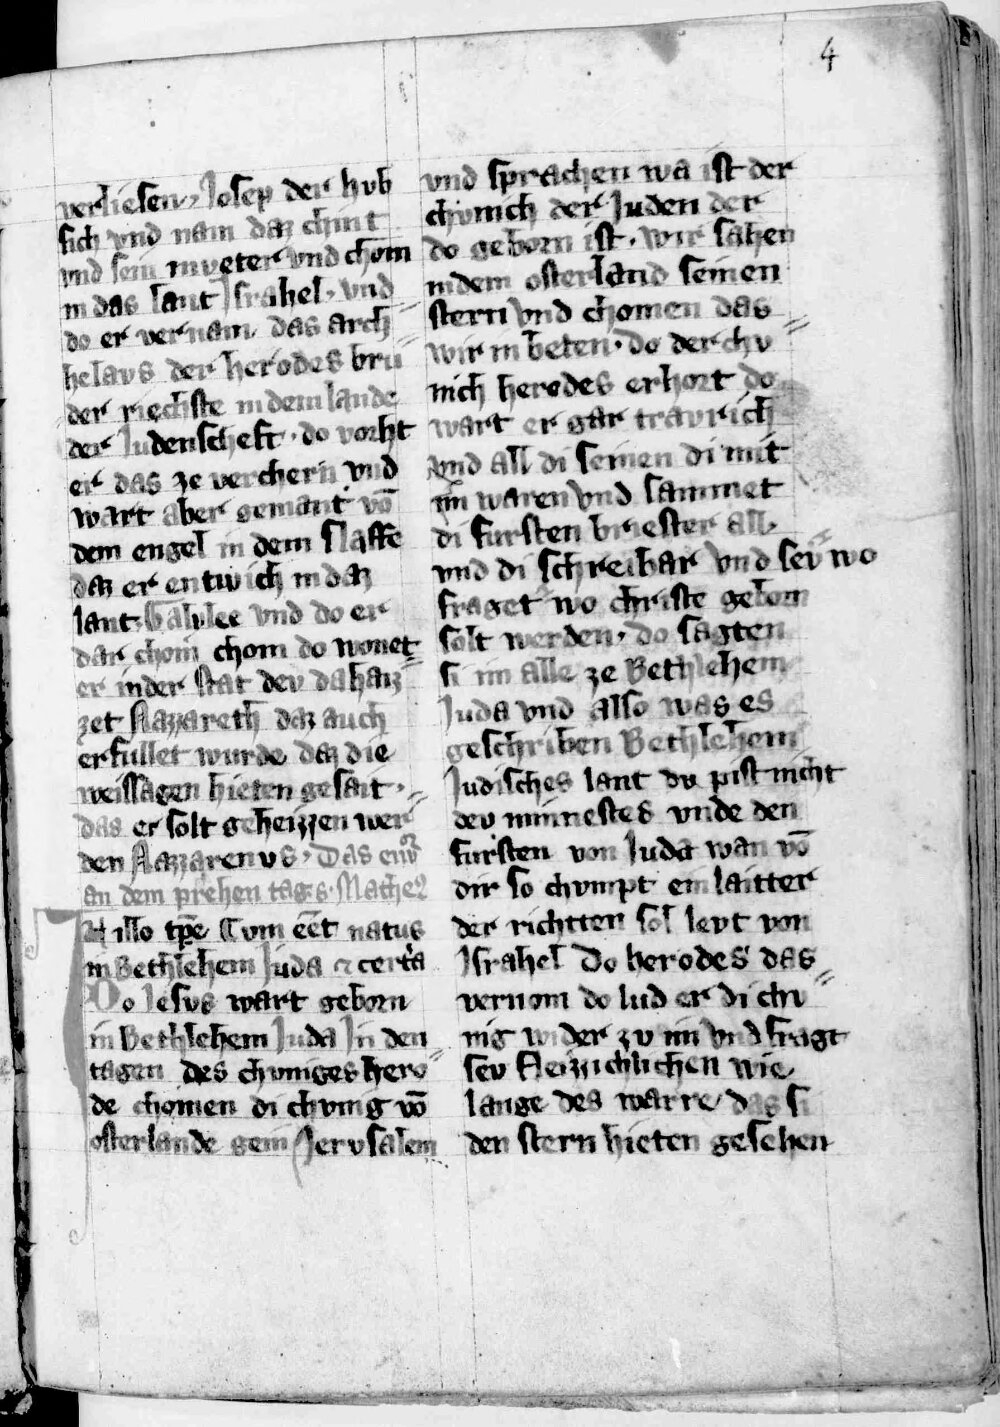 4
verliesen, Josep der hvb
sich vnd nam daz chint
vnd sein mveter vnd chom
in das lant Jsrahel. vnd
do er vernam. das arch=
helavs der herodes brv=
der riechste in dem lande
der Judenscheft. do vorht
er das ze verchern vnd
wart aber gemant vō
dem engel in dem slaffe
daz er entwich in daz
lant. Galilee vnd do er
dar chom chom do wonet=
er in der stat dev da haiz
zet Nazzareth daz auch
erfullet wurde daz die
weissagen hieten gesait.
das er solt geheizzen wer=
den Nazzarenvs. Das ewr
an dem prehen tag s. Mathe9
In illo tp̄e Cvm eēt natus
in Bethlehem Juda et certa
Do Jesvs wart geborn
in Bethlehem Juda Jn den
tagen des chvniges hero=
de chomen di chvnig vō
osterlande gein Jervsalem
vnd sprachen wa ist der
chvnich der Juden der
do geborn ist. wir sahen
in dem osterland seinen
stern vnd chomen das
wir in beten. do der chv=
nich herodes erhort do
wart er gar travrich
vnd all di seinen di mit
im waren vnd sammet
di fursten briester all.
vnd di schreibar vnd sev wo
fraget wo christe geborn
solt werden. do sagten
si im alle ze Bethlehem
Juda vnd also was es
geschriben Bethlehem
Judisches lant dv pist nicht
dev minnestes vnde den
fursten von Juda wan vō
dir so chvmpt ein laitter
der richtten sol levt von
Jsrahel Do herodes das
vernom do lud er di chv=
nig wider zv im vnd fragt
sev fleizzichlichen wie
lange des warre das si
den stern hieten gesehen